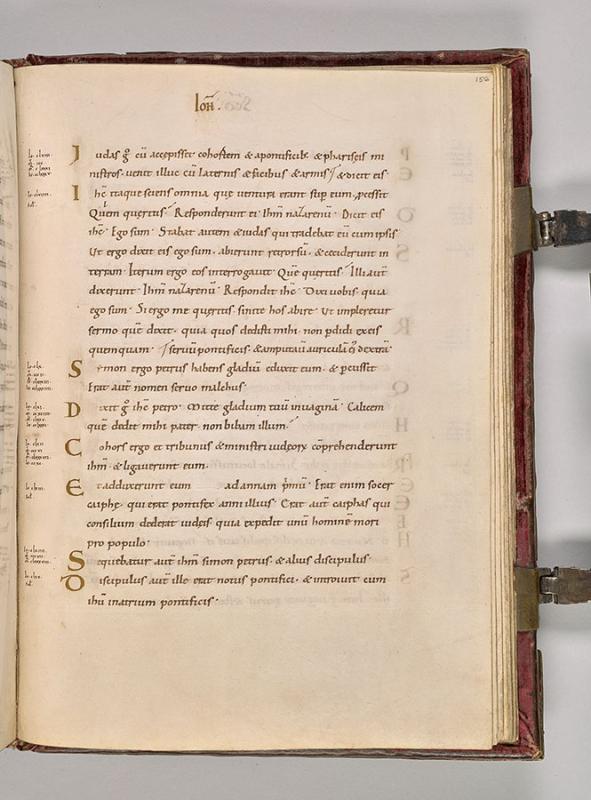 156
Ioħ.
Iudas g̊ cū accepisset cohortem & apontificib; & phariseis mi
nistros. uenit illuc cū laternis & facibus & armis / & dicit eis
Ihē itaque sciens omnia quę uentura erant sup eum. pcessit
Quem queritis / Responderunt ei Ihm nazarenū. Dicit eis
ihē. Ego sum. Stabat autem & iudas qui tradebat eū cum ipsis
Ut ergo dixit eis ego sum. abierunt retrorsū. & ceciderunt in
terram. Iterum ergo eos interrogauit Quē queritis / Illi aut̄
dixerunt. Ihm nazarenū. Respondit ihē. Dixi uobis. quia
ego sum. Si ergo me queritis. sinite hos abire. Ut impleretur
sermo quē dixit. quia quos dedisti mihi. non pdidi ex eis
quemquam. / seruū pontificis. & amputauit auriculā ei' dextrā.
Symon ergo petrus habens gladiū eduxit eum. & pcussit
Erat aut̄ nomen seruo malchus.
Dixit g̊ ihē petro. Mitte gladium tuū in uaginā. Calicem
quē dedit mihi pater. non bibam illum. /
Cohors ergo et tribunus & ministri iudeorȝ cōprehenderunt
ihm. & ligauerunt eum.
Et adduxerunt eum ad annam p̄mū. Erat enim socer
caiphę. qui erat pontifex anni illius. Erat aut̄ caiphas qui
consilium dederat iudęis quia expedit unū hominē mori
pro populo.
Sequebatur aut̄ ihm simon petrus. & alius discipulus
Discipulus aut̄ ille erat notus pontifici. & introiuit cum
ihū in atrium pontificis.